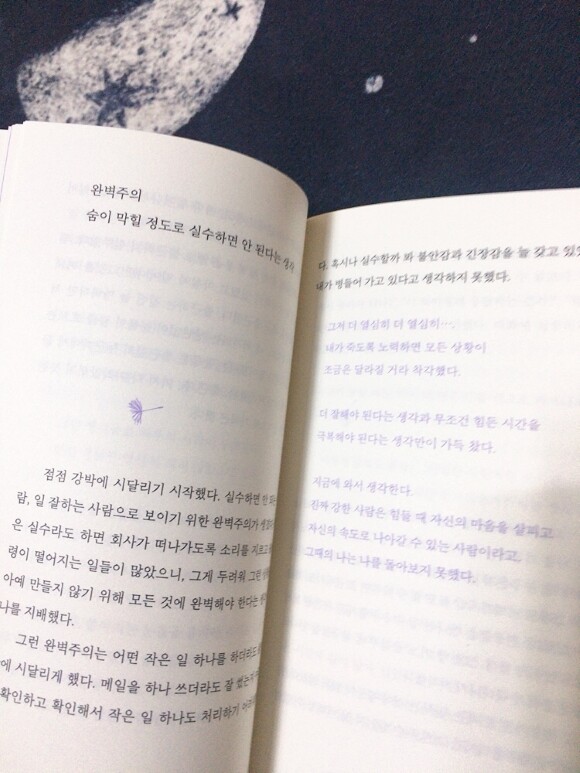 완벽주의
숨이 막힐 정도로 실수하면 안 된다는 생각
점점 강박에 시달리기 시작했다. 실수하면 안
람, 일 잘하는 사람으로 보이기 위한 완벽주의가
은 실수라도 하면 회사가 떠나가도록 소리를 지르고
령이 떨어지는 일들이 많았으니, 그게 두려워 그런
아예 만들지 않기 위해 모든 것에 완벽해야 한다는
나를 지배했다.
그런 완벽주의는 어떤 작은 일 하나를 하더라도
에 시달리게 했다. 메일을 하나 쓰더라도 잘
확인하고 확인해서 작은 일 하나도 처리하기
다. 혹시나 실수할까 봐 불안감과 긴장감을 늘 갖고 있었
내가 병들어 가고 있다고 생각하지 못했다.
그저 더 열심히 더 열심히…
내가 죽도록 노력하면 모든 상황이
조금은 달라질 거라 착각했다.
더 잘해야 된다는 생각과 무조건 힘든 시간을
극복해야 된다는 생각만이 가득 찼다.
지금에 와서 생각한다.
진짜 강한 사람은 힘들 때 자신의 마음을 살피고
자신의 속도로 나아갈 수 있는 사람이라고.
그때의 나는 나를 돌아보지 못했다.